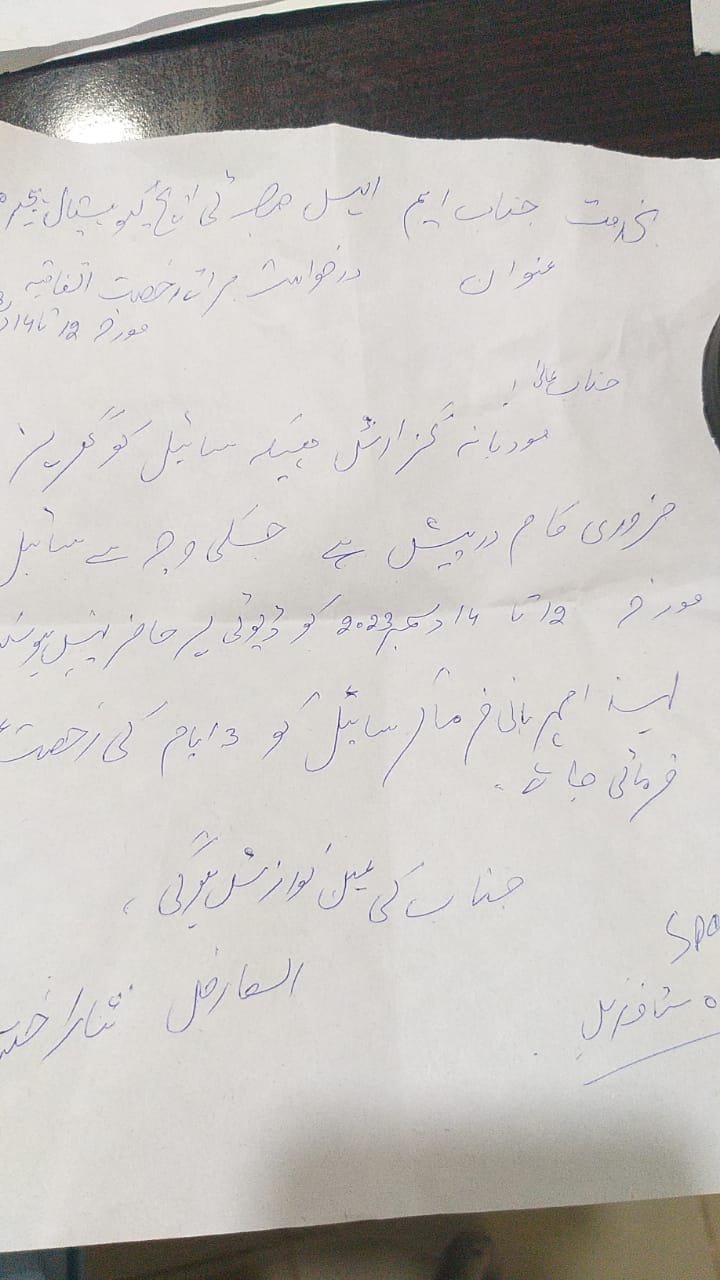 بخدمت جناب ایم ایس صاحب ٹی ایچ کیو ہسپتال
عنوان درخواست برائے رخصت اتفاقیہ
مورخہ 12 تا 14
جناب عالی!
مودبانہ گزارش ہیکہ سائیل کو گھر پر
ضروری کام درپیش ہے جسکی وجہ سے سائیل
مورخہ 12 تا 14 دسمبر 2023 کو ڈیوٹی پر حاضر نہیں
لہذا مہربانی فرما کر سائیل کو 3 ایام کی رخصت
فرمائی جائے۔
جناب کی عین نوازش ہوگی،
العارض